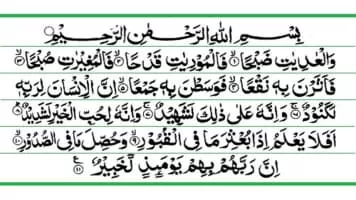 بِسْمِ اللّٰهِ الرَّحْمٰنِ الرَّحِيْمِ
وَالْعٰدِيٰتِ ضَبْحًا ۙ ۝ فَالْمُوْرِيٰتِ قَدْحًا ۙ ۝ فَالْمُغِيْرٰتِ صُبْحًا ۙ ۝
فَاَثَرْنَ بِهٖ نَقْعًا ۙ ۝ فَوَسَطْنَ بِهٖ جَمْعًا ۙ ۝ اِنَّ الْاِنْسَانَ لِرَبِّهٖ
لَكَنُوْدٌ ۚ ۝ وَاِنَّهٗ عَلٰى ذٰلِكَ لَشَهِيْدٌ ۚ ۝ وَاِنَّهٗ لِحُبِّ الْخَيْرِ لَشَدِيْدٌ ؕ ۝
اَفَلَا يَعْلَمُ اِذَا بُعْثِرَ مَا فِى الْقُبُوْرِ ۙ ۝ وَحُصِّلَ مَا فِى الصُّدُوْرِ ۙ ۝
اِنَّ رَبَّهُمْ بِهِمْ يَوْمَىِٕذٍ لَّخَبِيْرٌ ۝